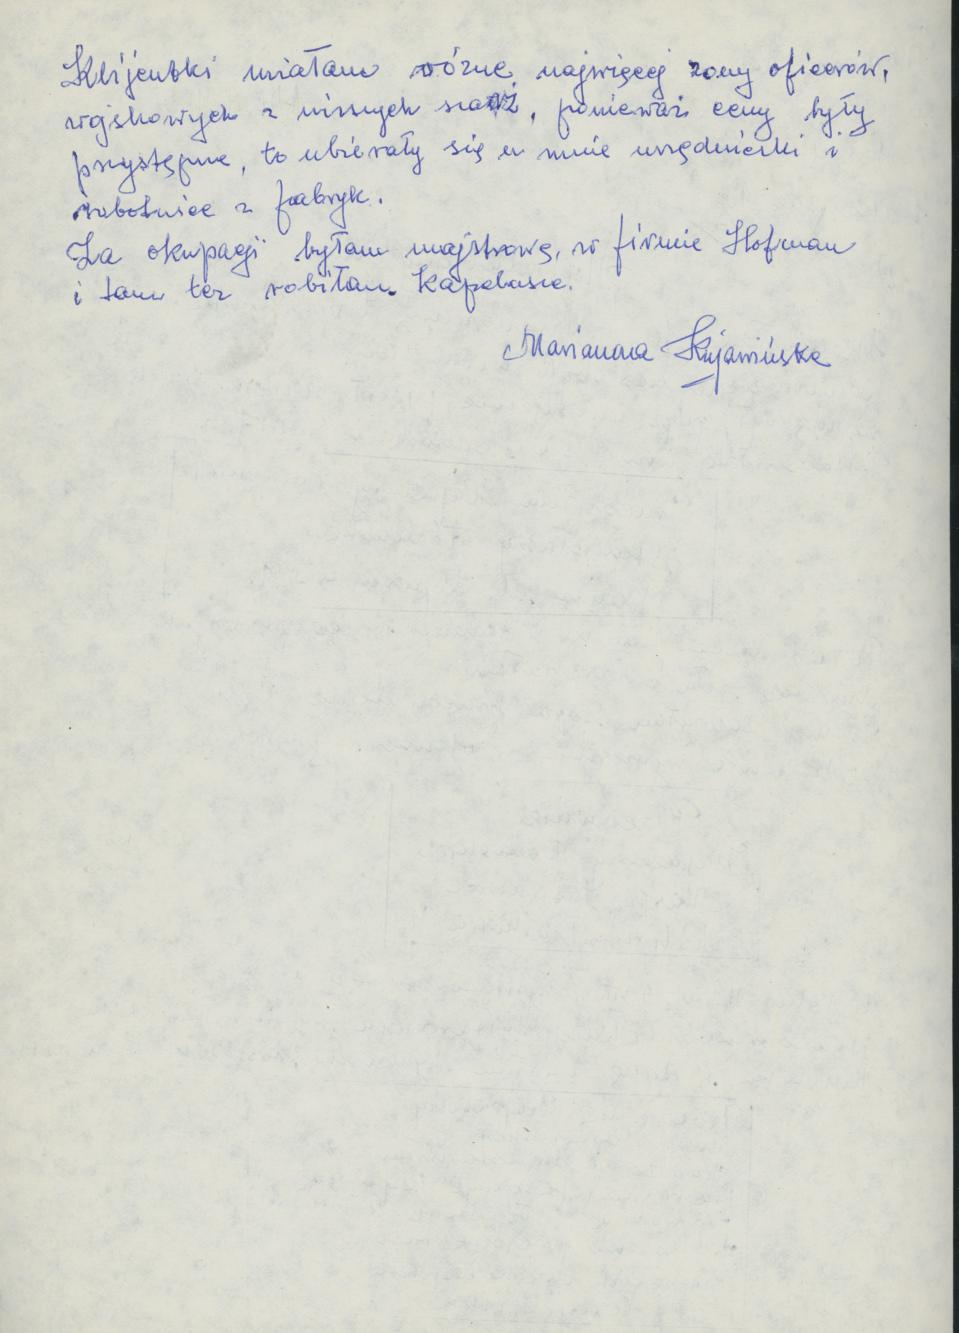 Klijentki miałam różne, najwięcej żony oficerów,
wojskowych z niższych szarż, ponieważ ceny były
przystępne, to ubierały się u mnie urzędniczki i
robotnice z fabryk.
Za okupacji byłam majstrową, w firmie Hofman
i tam też robiłam kapelusze.
Marianna Kujawińska